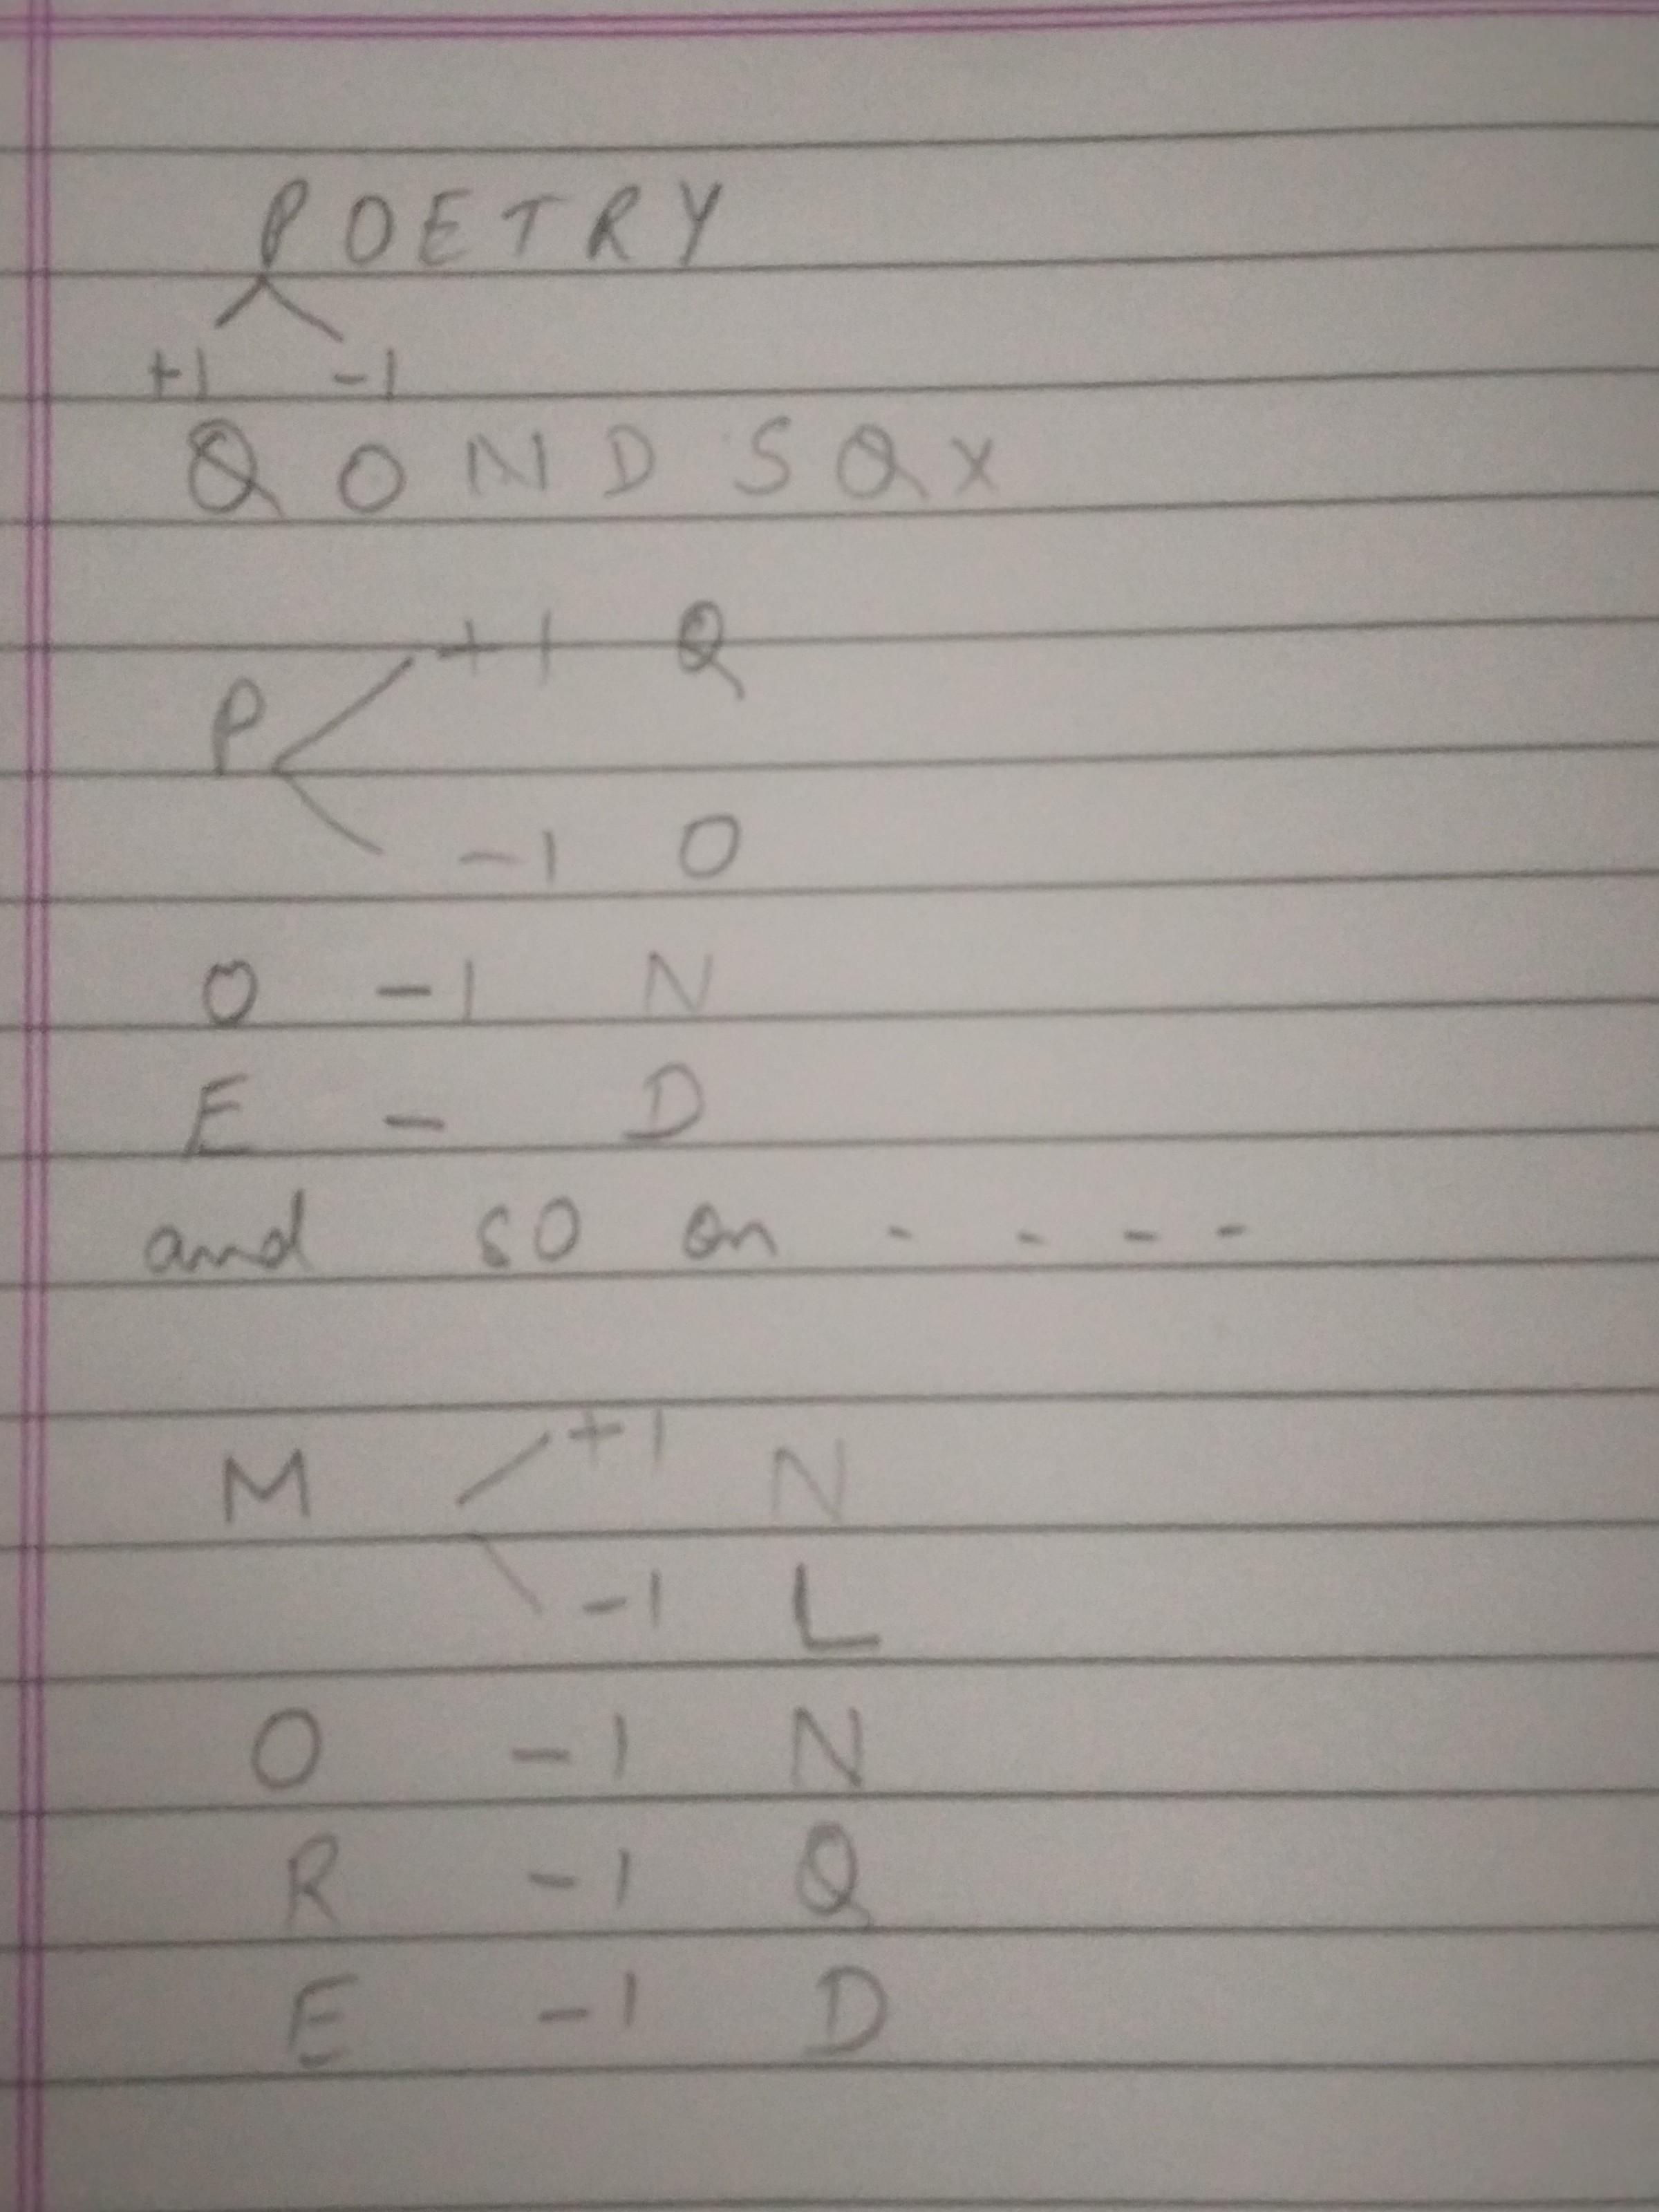 POETRY
+1 -1
QONDSQX
P +1 Q
-1 O
O -1 N
E - D
and so on - - - -
M +1 N
-1 L
O -1 N
R -1 Q
E -1 D